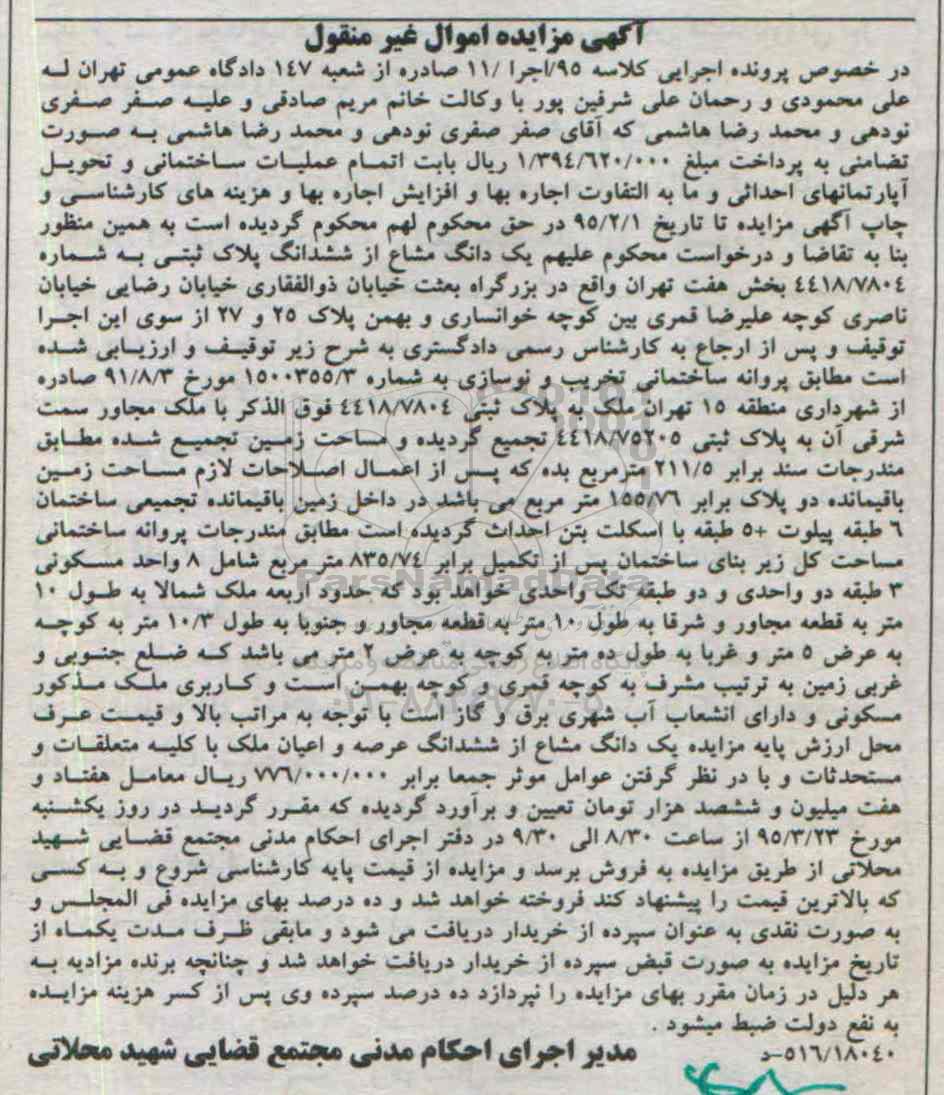 آگهی مزایده اموال غیر منقول
در خصوص پرونده اجرایی کلاسه ۹۵/اجرا /۱۱ صادره از شعبه ۱۴۷ دادگاه عمومی تهران له
علی محمودی و رحمان علی شرفین پور با وکالت خانم مریم صادقی و علیه صفر صفری
نودهی و محمد رضا هاشمی که آقای صفر صفری نودهی و محمد رضا هاشمی به صورت
تضامنی به پرداخت مبلغ ۱/۳۹۴/۶۲۰/۰۰۰ ریال بابت اتمام عملیات ساختمانی و تحویل
آپارتمانهای احداثی و ما به التفاوت اجاره بها و افزایش اجاره بها و هزینه های کارشناسی و
چاپ آگهی مزایده تا تاریخ ۹۵/۲/۱ در حق محکوم لهم محکوم گردیده است به همین منظور
بنا به تقاضا و درخواست محکوم علیهم یک دانگ مشاع از ششدانگ پلاک ثبتی به شماره
۴۴۱۸/۷۸۰۴ بخش هفت تهران واقع در بزرگراه بعثت خیابان ذوالفقاری خیابان رضایی خیابان
ناصری کوچه علیرضا قمری بین کوچه خوانساری و بهمن پلاک ۲۵ و ۲۷ از سوی این اجرا
توقیف و پس از ارجاع به کارشناس رسمی دادگستری به شرح زیر توقیف و ارزیابی شده
است مطابق پروانه ساختمانی تخریب و نوسازی به شماره ۱۵۰۰۳۵۵/۳ مورخ ۹۱/۸/۳ صادره
از شهرداری منطقه ۱۵ تهران ملک به پلاک ثبتی ۴۴۱۸/۷۸۰۴ فوق الذکر با ملک مجاور سمت
شرقی آن به پلاک ثبتی ۴۴۱۸/۷۵۲۰۵ تجمیع گردیده و مساحت زمین تجمیع شده مطابق
مندرجات سند برابر ۲۱۱/۵ مترمربع بده که پس از اعمال اصلاحات لازم مساحت زمین
باقیمانده دو پلاک برابر ۱۵۵/۷۶ متر مربع می باشد در داخل زمین باقیمانده تجمیعی ساختمان
۶ طبقه پیلوت +۵ طبقه با اسکلت بتن احداث گردیده است مطابق مندرجات پروانه ساختمانی
مساحت کل زیر بنای ساختمان پس از تکمیل برابر ۸۳۵/۷۴ متر مربع شامل ۸ واحد مسکونی
۳ طبقه دو واحدی و دو طبقه تک واحدی خواهد بود که حدود اربعه ملک شمالا به طول ۱۰
متر به قطعه مجاور و شرقا به طول ۱۰ متر به قطعه مجاور و جنوبا به طول ۱۰/۳ متر به کوچه
به عرض ۵ متر و غربا به طول ده متر به کوچه به عرض ۲ متر می باشد که ضلع جنوبی و
غربی زمین به ترتیب مشرف به کوچه قمری و کوچه بهمن است و کاربری ملک مذکور
مسکونی و دارای انشعاب آب شهری برق و گاز است با توجه به مراتب بالا و قیمت عرف
محل ارزش پایه مزایده یک دانگ مشاع از ششدانگ عرصه و اعیان ملک با کلیه متعلقات و
مستحدثات و با در نظر گرفتن عوامل موثر جمعا برابر ۷۷۶/۰۰۰/۰۰۰ ریال معامل هفتاد و
هفت میلیون و ششصد هزار تومان تعیین و برآورد گردیده که مقرر گردید در روز یکشنبه
مورخ ۹۵/۳/۲۳ از ساعت ۸/۳۰ الی ۹/۳۰ در دفتر اجرای احکام مدنی مجتمع قضایی شهید
محلاتی از طریق مزایده به فروش برسد و مزایده از قیمت پایه کارشناسی شروع و به کسی
که بالاترین قیمت را پیشنهاد کند فروخته خواهد شد و ده درصد بهای مزایده فی المجلس و
به صورت نقدی به عنوان سپرده از خریدار دریافت می شود و مابقی ظرف مدت یکماه از
تاریخ مزایده به صورت قبض سپرده از خریدار دریافت خواهد شد و چنانچه برنده مزادیه به
هر دلیل در زمان مقرر بهای مزایده را نپردازد ده درصد سپرده وی پس از کسر هزینه مزایده
به نفع دولت ضبط میشود .
۵۱۶/۱۸۰۴۰-د
مدیر اجرای احکام مدنی مجتمع قضایی شهید محلاتی
ParsNamadData